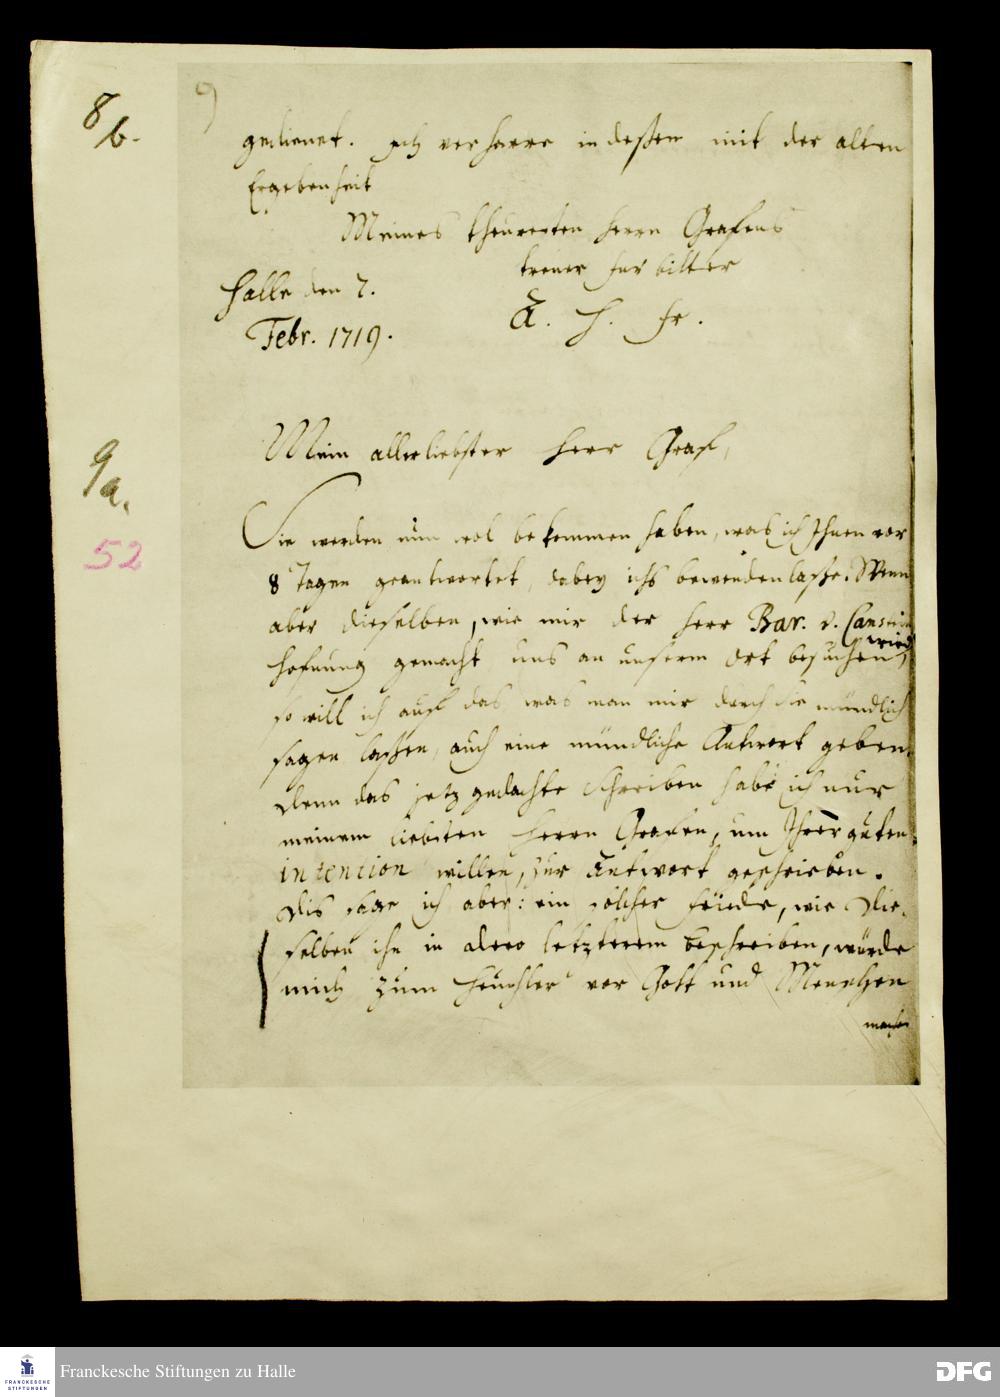 8
b.
9
gedienet. Ich verharre indeßen mit der alten
Ergebenheit
Meines theuresten Herrn Grafens
treuer fürbitter
Halle den 7.
Febr. 1719.
A. H. Fr.
Mein allerliebster Herr Graf,
9
a.
52
Sie werden nun wol bekommen haben, was ich Ihnen vor
8 Tagen geantwortet, dabey ichs bewenden laße. Wenn
aber dieselben, wie mir der Herr Bar. v. Canstein
wird
Hofnung gemacht uns an unserm Ort besuchen,
so will ich auf das was man mir durch sie mündlich
sagen laßen, auch eine mündliche Antwort geben.
Denn das jetz gedachte Schreiben habe ich nur
meinem liebsten Herrn Grafen, um Ihrer guten
intention willen, zur Antwort geschrieben.
Dis sage ich aber: ein solcher friede, wie Die-
selben ihn in dero letzterem beschreiben, würde
mich zum Heuchler vor Gott und Menschen
machen
Franckesche Stiftungen zu Halle
FRANCKESCHE
STIFTUNGEN
DFG